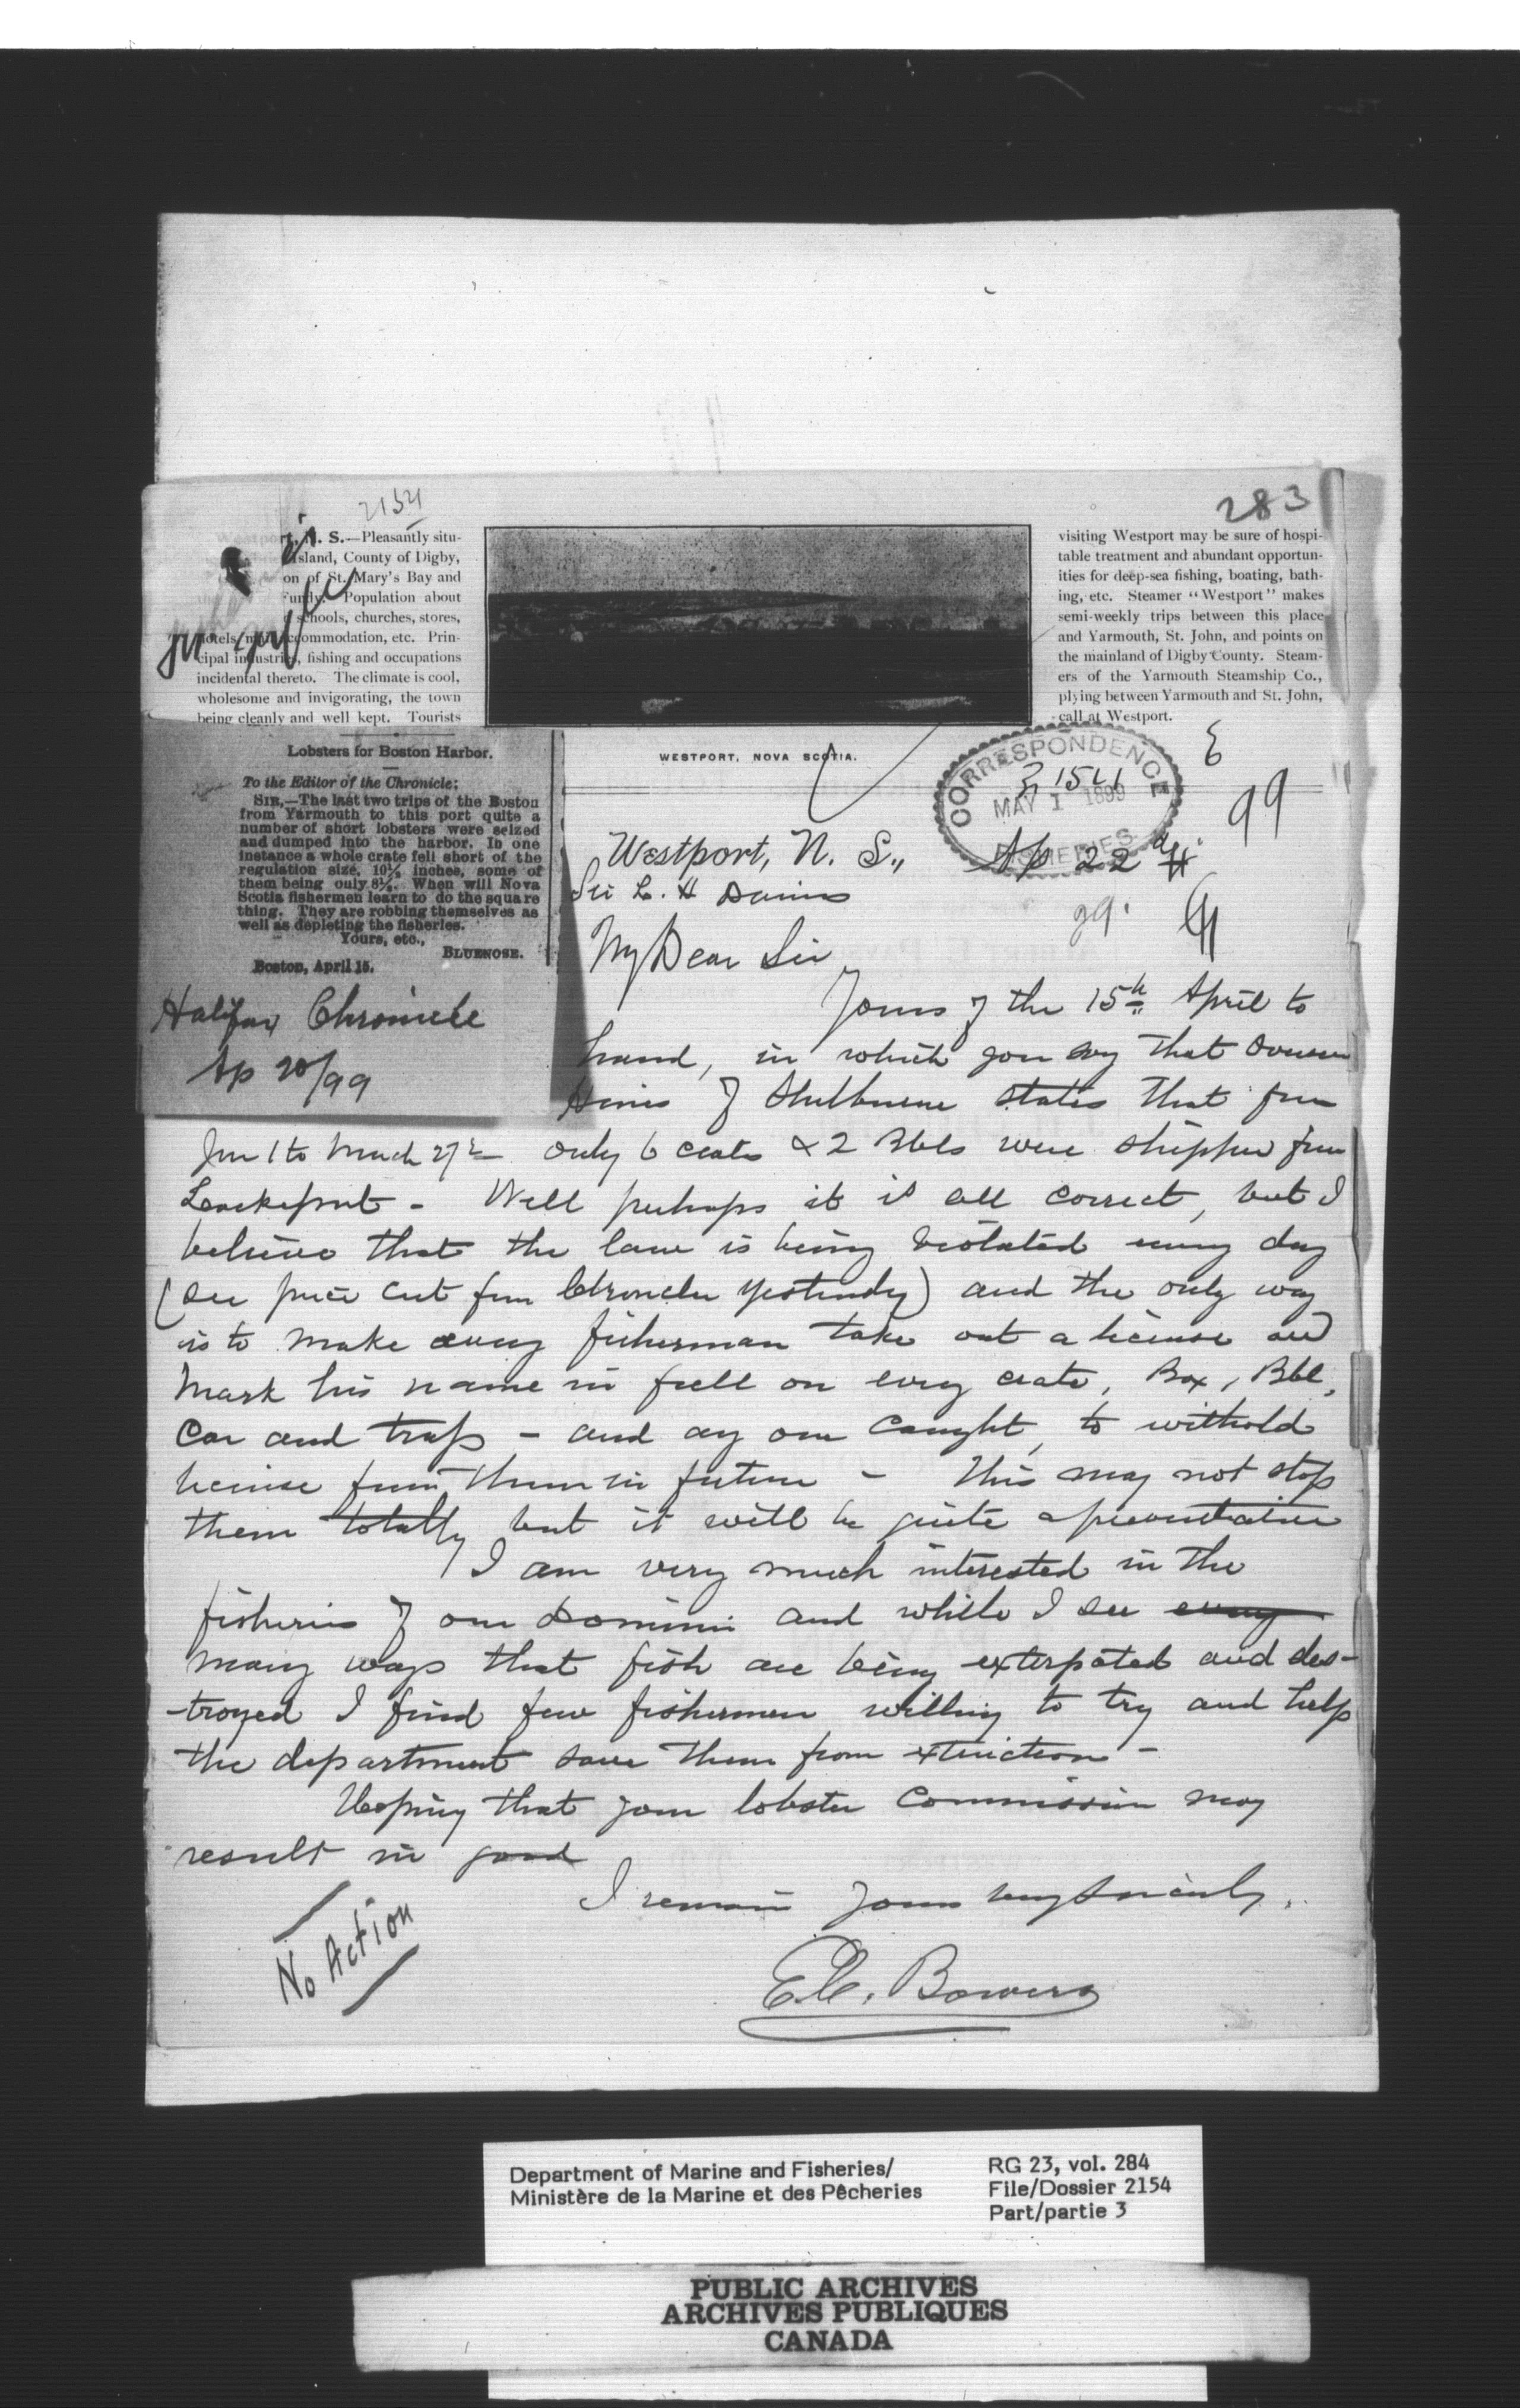 2154
283
, N. S.—Pleasantly situ-
Island, County of Digby,
on of St. Mary's Bay and
Fundy. Population about
schools, churches, stores,
hotels, accommodation, etc. Prin-
cipal industries, fishing and occupations
incidental thereto. The climate is cool,
wholesome and invigorating, the town
being cleanly and well kept. Tourists
visiting Westport may be sure of hospi-
table treatment and abundant opportun-
ities for deep-sea fishing, boating, bath-
ing, etc. Steamer "Westport" makes
semi-weekly trips between this place
and Yarmouth, St. John, and points on
the mainland of Digby County. Steam-
ers of the Yarmouth Steamship Co.,
plying between Yarmouth and St. John,
call at Westport.
WESTPORT, NOVA SCOTIA.
CORRESPONDENCE
MAY 1 1899
FISHERIES
Lobsters for Boston Harbor.
To the Editor of the Chronicle;
SIR,—The last two trips of the Boston
from Yarmouth to this port quite a
number of short lobsters were seized
and dumped into the harbor. In one
instance a whole crate fell short of the
regulation size, 10½ inches, some of
them being only 8½. When will Nova
Scotia fishermen learn to do the square
thing. They are robbing themselves as
well as depleting the fisheries.
Yours, etc.,
BLUENOSE.
Boston, April 15.
Halifax Chronicle
Ap 20/99
Westport, N. S., Ap 22 99
Sir L. H Davies
My Dear Sir
Yours of the 15th April to
hand, in which you say that
of Shelburne states that from
Jan 1 to March 27th only 6 crates & 2 Bbls were shipped from
Lockeport - Well perhaps it is all correct, but I
believe that the law is being violated every day
(see piece cut from Chronicle yesterday) and the only way
is to make every fisherman take out a license and
mark his name in full on every crate, Box, Bbl,
Car and trap - and any one caught, to withold
license from them in future - This may not stop
them totally but it will be quite a preventative
I am very much interested in the
fisheries of our Dominion and while I see every
many ways that fish are being exterpated and des-
-troyed I find few fishermen willing to try and help
the department save them from extinction -
Hoping that your lobster Commission may
result in good
I remain yours very sincerely.
E.C. Bowers
No Action
Department of Marine and Fisheries/
Ministère de la Marine et des Pêcheries
RG 23, vol. 284
File/Dossier 2154
Part/partie 3
PUBLIC ARCHIVES
ARCHIVES PUBLIQUES
CANADA